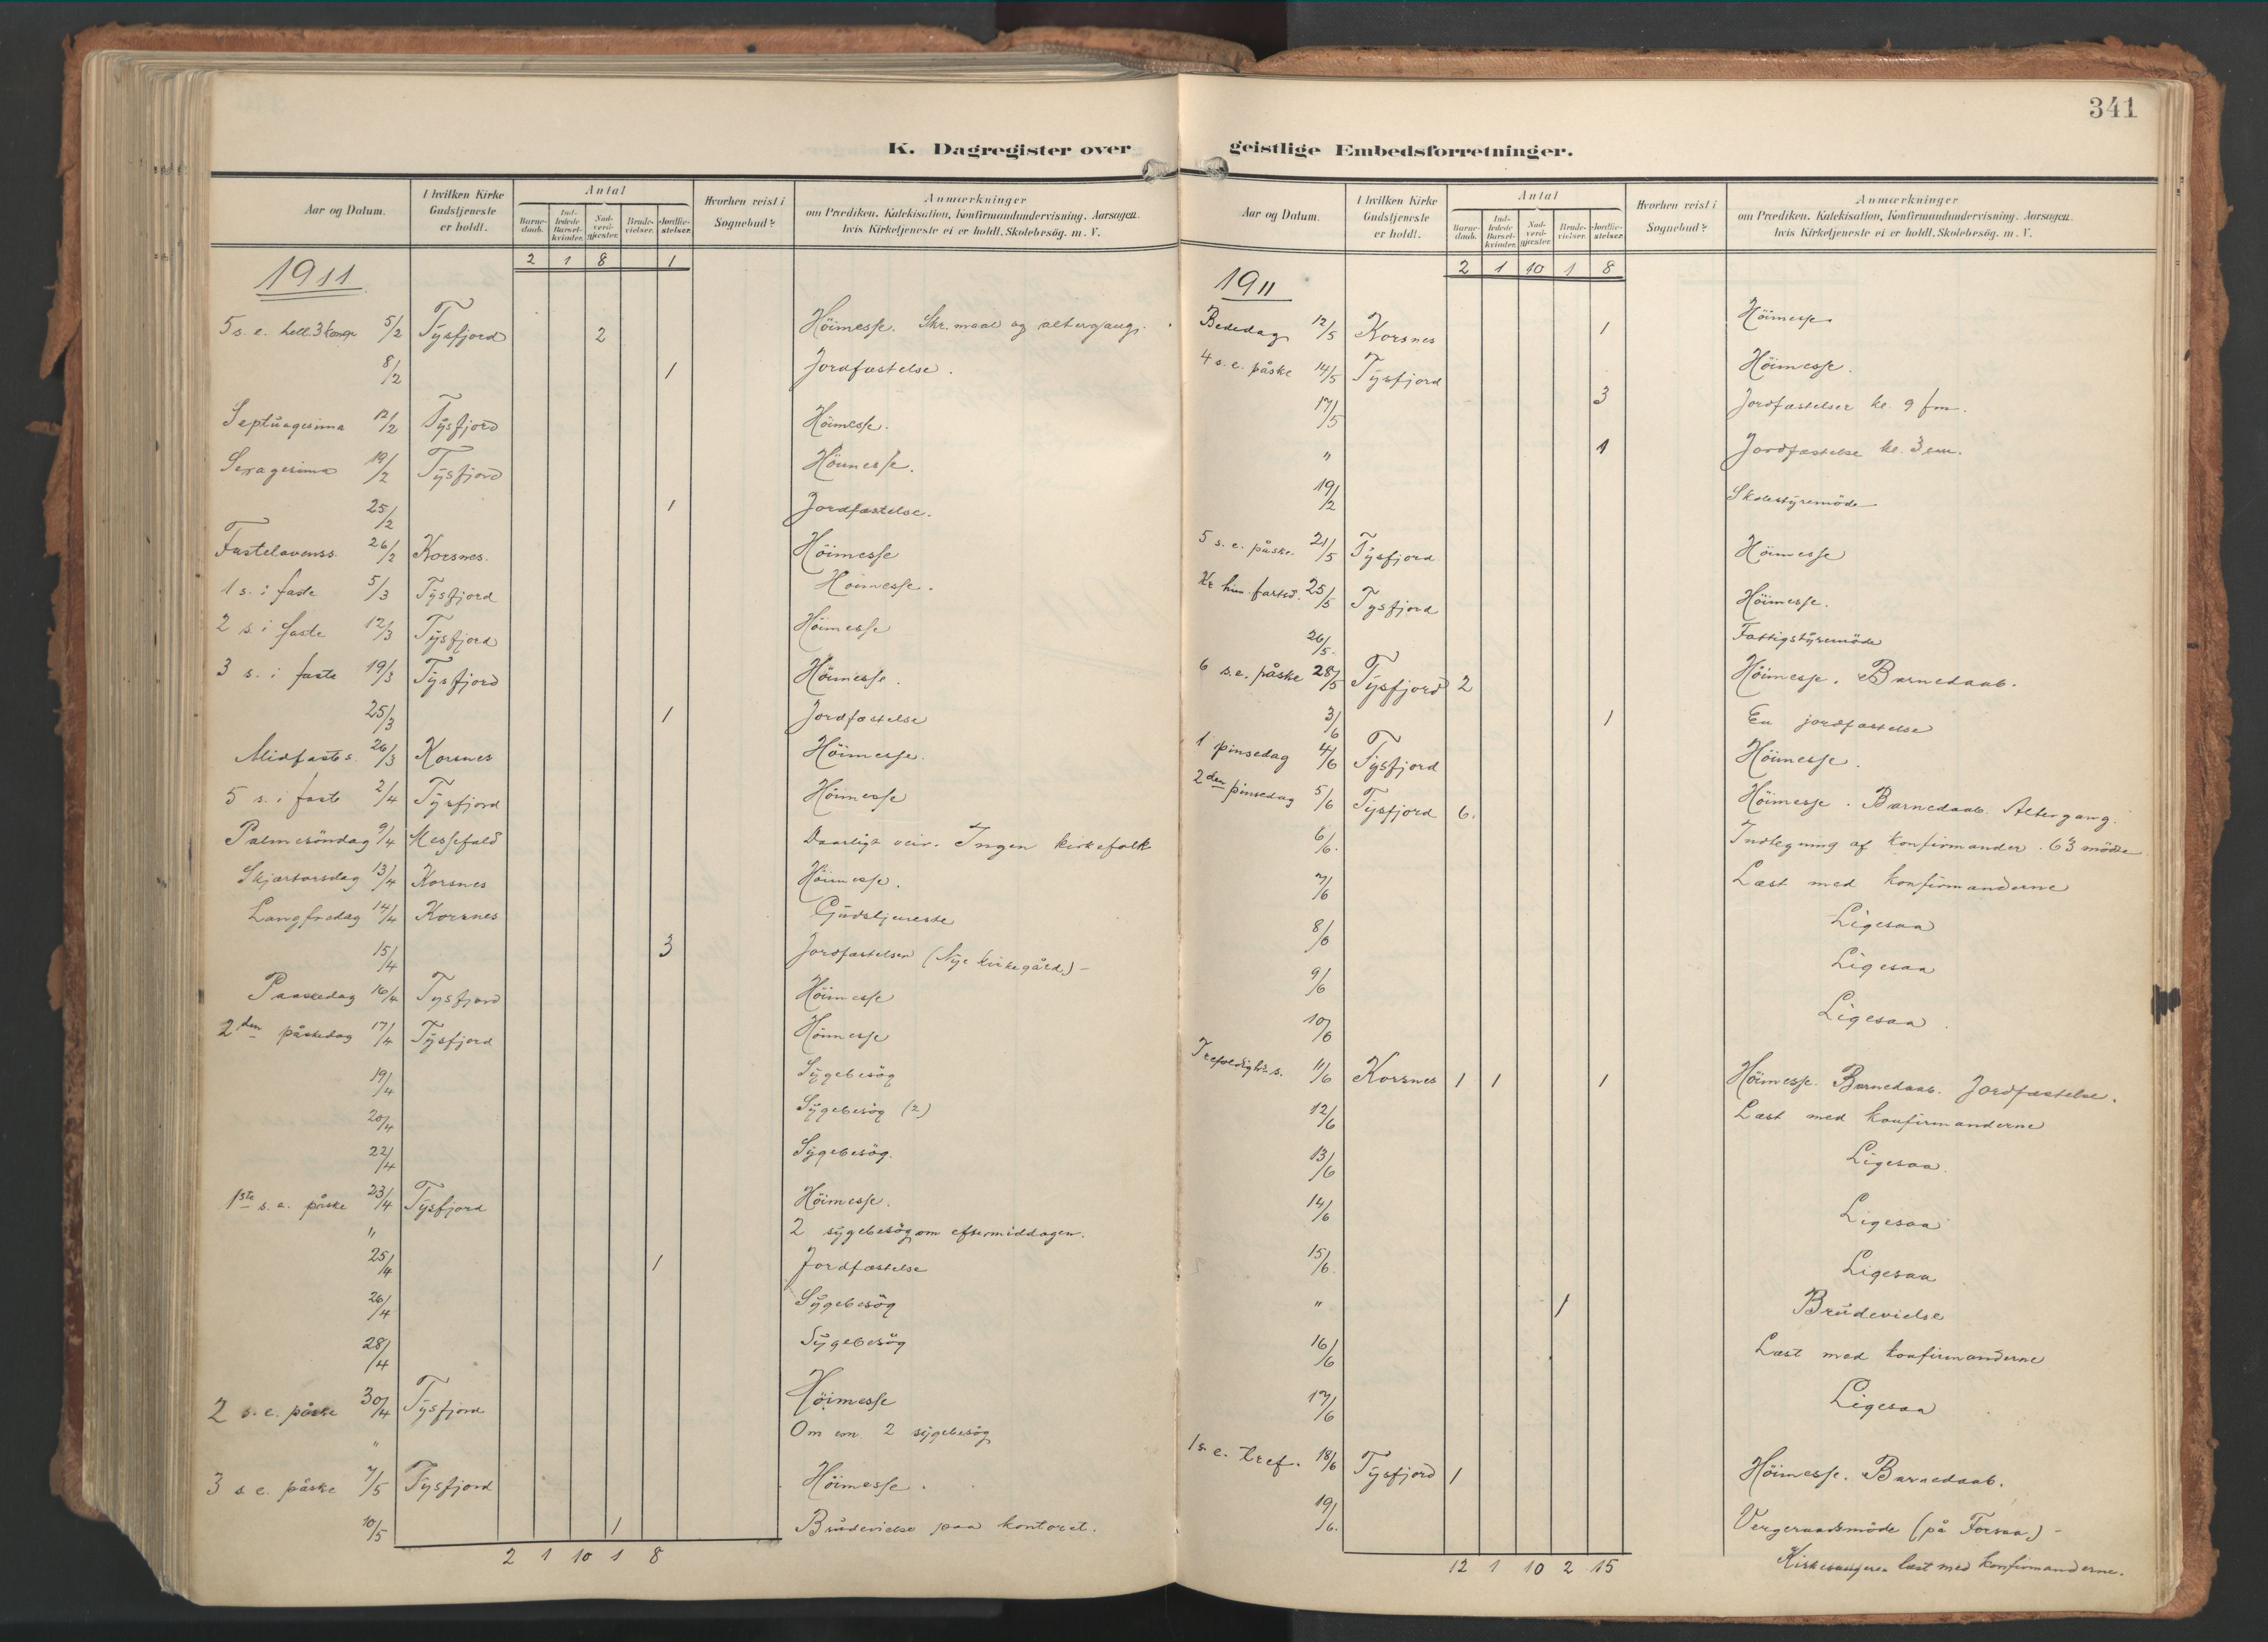 341
K. Dagregister over geistlige Embedsforretninger.
Aar og Datum. I hvilken Kirke Gudstjeneste er holdt. Antal Barnedaab. Indledede Barselkvinder. Nadverdgjester. Brudevielser. Jordfæstelser. Hvorhen reist i Sognebud? Anmærkninger om Prædiken. Katekisation, Konfirmandundervisning. Aarsagen. hvis Kirketjeneste ei er holdt. Skolebesøg. m. V.
1911 2 1 8 1
5 s. e. hell. 3 konge 5/2 Tysfjord 2 Höimesse. Skr. maal og altergang.
8/2 1 Jordfæstelse.
Septuagesima 12/2 Tysfjord Höimesse.
Sexagesima 19/2 Tysfjord Höimesse.
25/2 1 Jordfæstelse.
Fastelavenss. 26/2 Korsnes. Höimesse
1 s. i faste 5/3 Tysfjord Höimesse.
2 s. i faste 12/3 Tysfjord Höimesse
3 s. i faste 19/3 Tysfjord Höimesse.
25/3 1 Jordfæstelse
Midfastes. 26/3 Korsnes Höimesse.
5 s. i faste 2/4 Tysfjord Höimesse
Palmesöndag 9/4 Messefald Daarligt veir. Ingen kirkefolk
Skjærtorsdag 13/4 Korsnes Höimesse.
Langfredag 14/4 Korsnes Gudstjeneste
15/4 3 Jordfæstelser (Nye kirkegård.) -
Paaskedag 16/4 Tysfjord Höimesse
2den påskedag 17/4 Tysfjord Höimesse
19/4 Sygebesög
20/4 Sygebesög (2)
22/4 Sygebesög.
1ste s. e. påske 23/4 Tysfjord Höimesse.
" 2 sygebesög om eftermiddagen.
25/4 1 Jordfæstelse
26/4 Sygebesög
28/4 Sygebesög
2 s. e. påske 30/4 Tysfjord Höimesse
" Om em. 2 sygebesög
3 s. e. påske 7/5 Tysfjord Höimesse.
10/5 1 Brudevielse paa kontoret.
2 1 10 1 8
Aar og Datum. I hvilken Kirke Gudstjeneste er holdt. Antal Barnedaab. Indledede Barselkvinder. Nadverdgjester. Brudevielser. Jordfæstelser. Hvorhen reist i Sognebud? Anmærkninger om Prædiken. Katekisation, Konfirmandundervisning. Aarsagen. hvis Kirketjeneste ei er holdt. Skolebesøg. m. V.
1911 2 1 10 1 8
Bededag 12/5 Korsnes 1 Höimesse
4 s. e. påske 14/5 Tysfjord Höimesse.
17/5 3 Jordfæstelser kl. 9 fm.
" 1 Jordfæstelse kl. 3 em.
19/2 Skolestyremöde
5 s. e. påske. 21/5 Tysfjord Höimesse
Kr. him. fartsd. 25/5 Tysfjord Höimesse.
26/5. Fattigstyremöde
6 s. e. påske 28/5 Tysfjord 2 Höimesse. Barnedaab.
3/6 1 En jordfæstelse
1 pinsedag 4/6 Tysfjord Höimesse.
2den pinsedag 5/6 Tysfjord 6. Höimesse. Barnedaab. Altergang.
6/6. Indlegning af konfirmander. 63 mödte
7/6 Læst med konfirmanderne
8/6 Ligesaa
9/6 Ligesaa
10/6 Ligesaa.
Trefoldigh. s. 11/6 Korsnes 1 1 1 Höimesse. Barnedaab. Jordfæstelse.
12/6 Læst med konfirmanderne
13/6 Ligesaa.
14/6 Ligesaa
15/6. Ligesaa
" 1 Brudevielse
16/6 Læst med konfirmanderne
17/6 Ligesaa
1 s. e. tref. 18/6 Tysfjord 1 Höimesse. Barnedaab.
19/6. Vergeraadsmöde (på Forsaa.) -
Kirkesangeren læst med konfirmanderne.
12 1 10 2 15